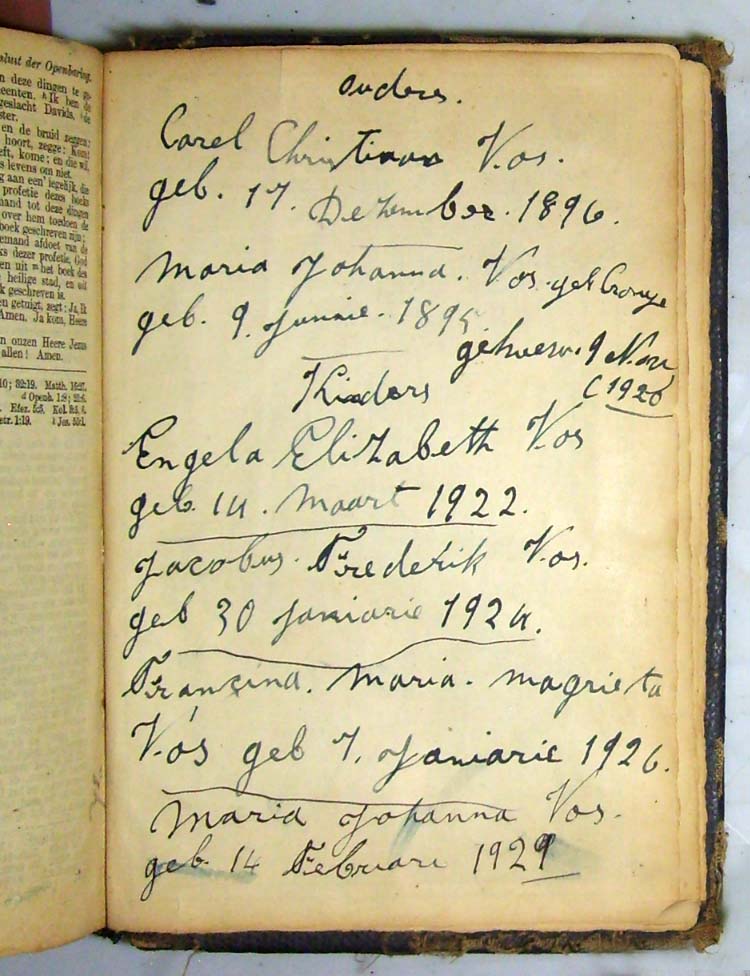 sluit der Openbaring.
n deze dingen te ge-
eenten. Ik ben de
geslacht Davids, de
ster.
en de bruid zeggen:
hoort, zegge: Kom!
eft, kome; en die wil,
s levens om niet.
g aan een' iegelijk, die
profetie dezes boeks
mand tot deze dingen
over hem toedoen de
boek geschreven zijn;
emand afdoet van de
ks dezer profetie, God
en uit het boek des
heilige stad, en uit
k geschreven is.
en getuigt, zegt: Ja, Ik
Amen. Ja kom, Heere
n onzen Heere Jezus
allen! Amen.
10; 32:19. Matth. 16:27.
Openb. 1:8; 21:6.
Efez. 5:5. Kol. 3:5, 6.
Petr. 1:19. Jes. 55:1.
ouders.
Carel Christiaan Vos.
geb. 17. Dezember. 1896.
Maria Johanna. Vos. geb Cronje
geb. 9. Junnie. 1895
gehuew. 9 Nov
(1920
Kinders
Engela Elizabeth Vos
geb. 14. Maart 1922.
Jacobus. Frederik Vos.
geb 30 Janiarie 1924.
Francina. Maria. Magrieta
Vos geb 7. Janiarie 1926.
Maria Johanna Vos.
geb. 14 Februari 1929